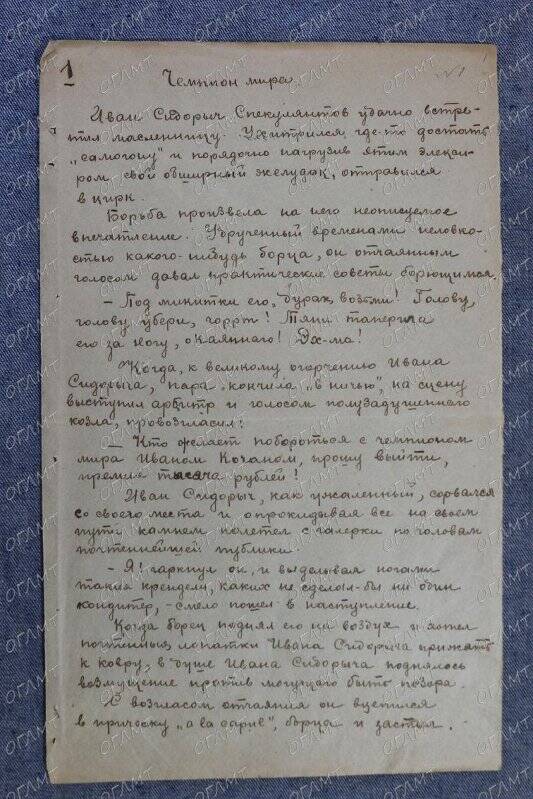 1
№1
Чемпион мира.
Иван Сидорыч Спекулянтов удачно встре-
тил масленницу. Ухитрился где-то достать
„самогону" и порядочно нагрузив этим элекси-
ром, свой обширный желудок, отправился
в цирк.
Борьба произвела на него неописуемое
впечатление. Удрученный временами неловко-
стью какого-нибудь борца, он отчаянным
голосом давал практические советы борющимся.
– Под микитки его, бурак, возьми! Голову,
голову убери, чоррт! Тяни таперича
его за ногу, окаянного! Эх-ма!
Когда, к великому огорчению Ивана
Сидорыча, пара кончила „в ничью", на сцену
выступил арбитр и голосом полузадушеннаго
козла, провозгласил:
– Кто желает побороться с чемпионом
мира Иваном Кочаном, прошу выйти,
премия тысяча рублей!
Иван Сидорыч, как ужаленный, сорвался
со своего места и опрокидывая все на своем
пути камнем полетел с галерки по головам
почтеннейшей публики.
– Я! гаркнул он, и выделывая ногами
такия крендели, каких не сделал-бы ни один
кондитер, – смело пошел в наступление.
Когда борец поднял его на воздух и хотел
почтенныя лопатки Ивана Сидорыча прижать
к ковру, в душе Ивана Сидорыча поднялось
возмущение против могущаго быть позора.
С возгласом отчаяния он вцепился
в прическу „а ла дарие", борца и застыл.
ОГЛМТ